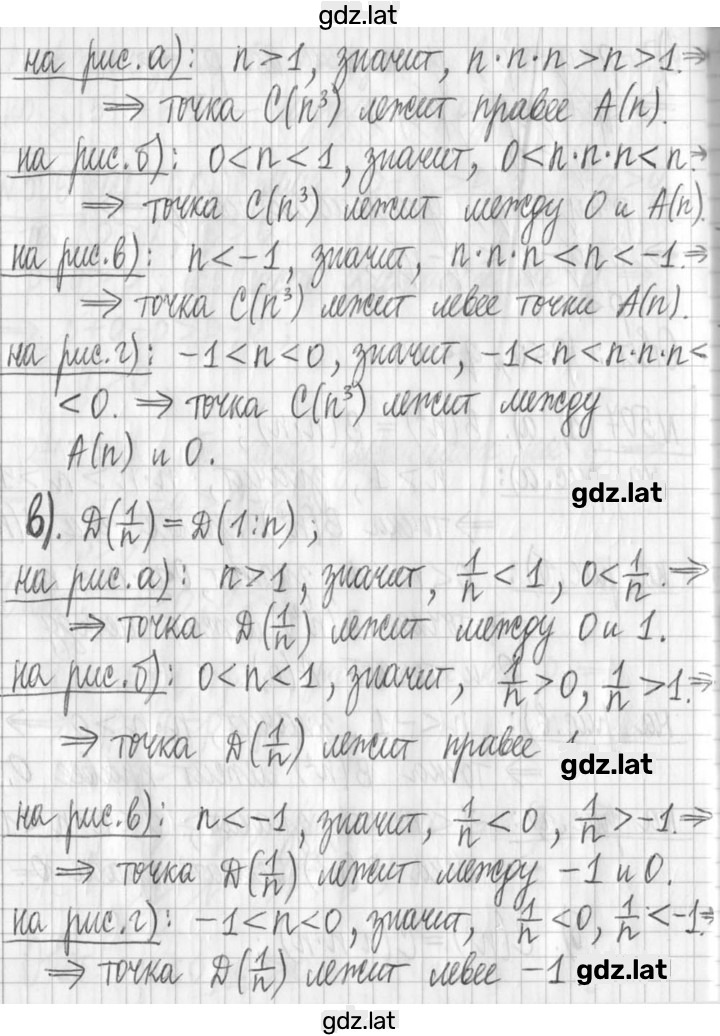 gdz.lat
на рис. а): n > 1, значит, n · n · n > n > 1. ⇒
⇒ точка C(n³) лежит правее A(n).
на рис. б): 0 < n < 1, значит, 0 < n · n · n < n. ⇒
⇒ точка C(n³) лежит между 0 и A(n).
на рис. в): n < -1, значит, n · n · n < n < -1. ⇒
⇒ точка C(n³) лежит левее точки A(n).
на рис. г): -1 < n < 0, значит, -1 < n < n · n · n <
< 0. ⇒ точка C(n³) лежит между
A(n) и 0.
gdz.lat
в). D(1/n) = D(1 : n);
на рис. а): n > 1, значит, 1/n < 1, 0 < 1/n. ⇒
⇒ точка D(1/n) лежит между 0 и 1.
на рис. б): 0 < n < 1, значит, 1/n > 0, 1/n > 1. ⇒
⇒ точка D(1/n) лежит правее
gdz.lat
на рис. в): n < -1, значит, 1/n < 0, 1/n > -1. ⇒
⇒ точка D(1/n) лежит между -1 и 0.
на рис. г): -1 < n < 0, значит, 1/n < 0, 1/n < -1. ⇒
⇒ точка D(1/n) лежит левее -1
gdz.lat
gdz.lat